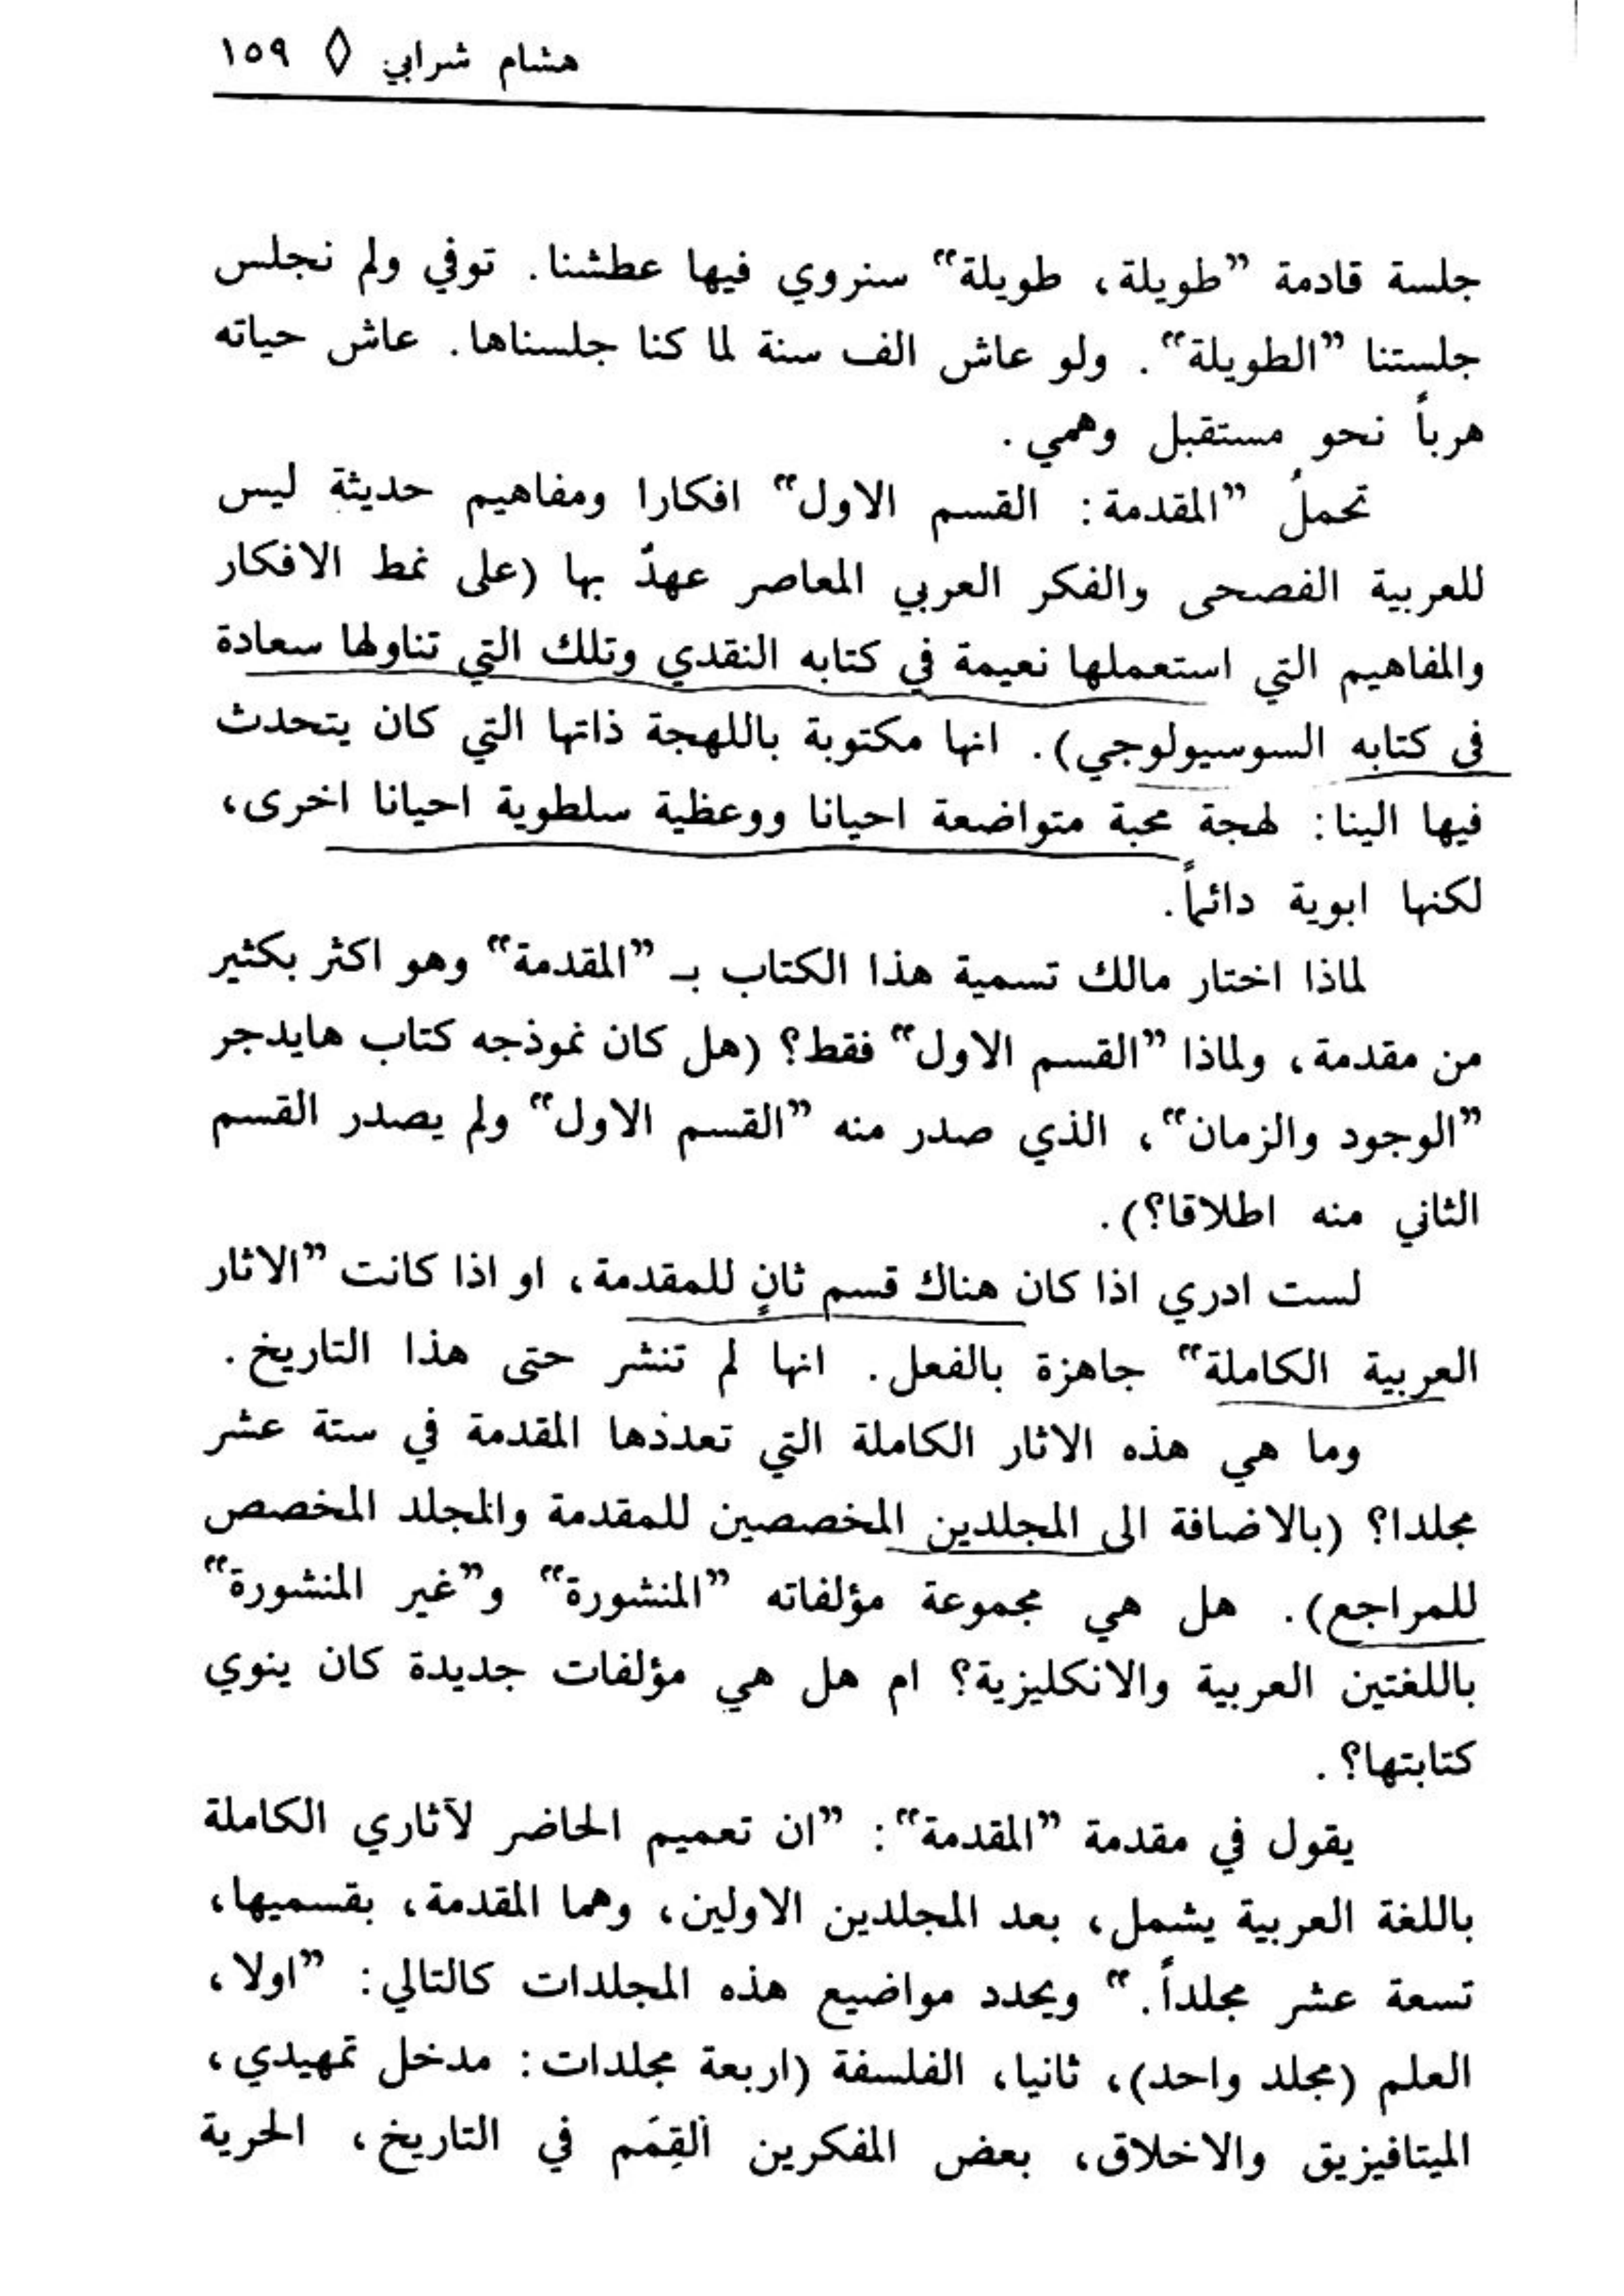 هشام شرابي ◊ ١٥٩
جلسة قادمة ”طويلة، طويلة“ سنروي فيها عطشنا. توفي ولم نجلس
جلستنا ”الطويلة“. ولو عاش الف سنة لما كنا جلسناها. عاش حياته
هرباً نحو مستقبل وهمي.
تحملُ ”المقدمة: القسم الاول“ افكارا ومفاهيم حديثة ليس
للعربية الفصحى والفكر العربي المعاصر عهدٌ بها (على نمط الافكار
والمفاهيم التي استعملها نعيمة في كتابه النقدي وتلك التي تناولها سعادة
في كتابه السوسيولوجي). انها مكتوبة باللهجة ذاتها التي كان يتحدث
فيها الينا: لهجة محبة متواضعة احيانا ووعظية سلطوية احيانا اخرى،
لكنها ابوية دائماً.
لماذا اختار مالك تسمية هذا الكتاب بـ ”المقدمة“ وهو اكثر بكثير
من مقدمة، ولماذا ”القسم الاول“ فقط؟ (هل كان نموذجه كتاب هايدجر
”الوجود والزمان“، الذي صدر منه ”القسم الاول“ ولم يصدر القسم
الثاني منه اطلاقا؟).
لست ادري اذا كان هناك قسم ثانٍ للمقدمة، او اذا كانت ”الاثار
العربية الكاملة“ جاهزة بالفعل. انها لم تنشر حتى هذا التاريخ.
وما هي هذه الاثار الكاملة التي تعددها المقدمة في ستة عشر
مجلدا؟ (بالاضافة الى المجلدين المخصصين للمقدمة والمجلد المخصص
للمراجع). هل هي مجموعة مؤلفاته ”المنشورة“ و”غير المنشورة“
باللغتين العربية والانكليزية؟ ام هل هي مؤلفات جديدة كان ينوي
كتابتها؟.
يقول في مقدمة ”المقدمة“: ”ان تعميم الحاضر لآثاري الكاملة
باللغة العربية يشمل، بعد المجلدين الاولين، وهما المقدمة، بقسميها،
تسعة عشر مجلداً.“ ويحدد مواضيع هذه المجلدات كالتالي: ”اولا،
العلم (مجلد واحد)، ثانيا، الفلسفة (اربعة مجلدات: مدخل تمهيدي،
الميتافيزيق والاخلاق، بعض المفكرين القِمَم في التاريخ، الحرية